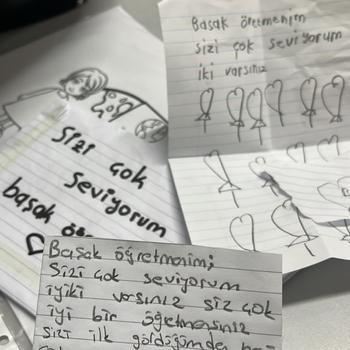 Başak öretmenim
sizi çok seviyorum
iki varsınız
Sizi çok
seviyorum
başak
Başak öğretmenim;
Sizi çok seviyorum
iyiki varsınız siz çok
iyi bir öğetmensiniz
sizi ilk gördüğümde